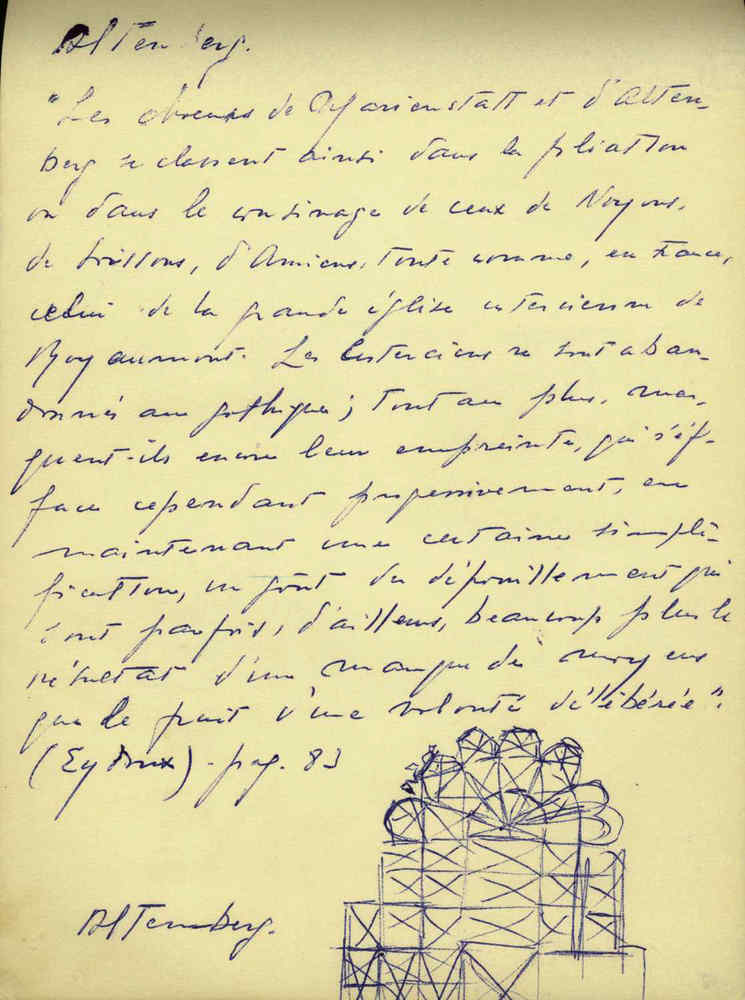 Altenberg.
"Les choeurs de Marienstatt et d'Alten-
berg se classent ainsi dans la filiation
ou dans le cousinage de ceux de Noyons,
de Soissons, d'Amiens, tout comme, en France,
celui de la grande église cistercienne de
Royaumont. Les Cisterciens se sont aban-
donnés au gothique; tout au plus, mar-
quent-ils encore leur empreinte, qui s'ef-
face cependant progressivement, en
maintenant une certaine simpli-
fication, un goût du dépouillement qui
sont parfois, d'ailleurs, beaucoup plus le
résultat d'un manque de moyens
que le fruit d'une volonté délibérée".
(Eydoux) - pag. 83
Altenberg.